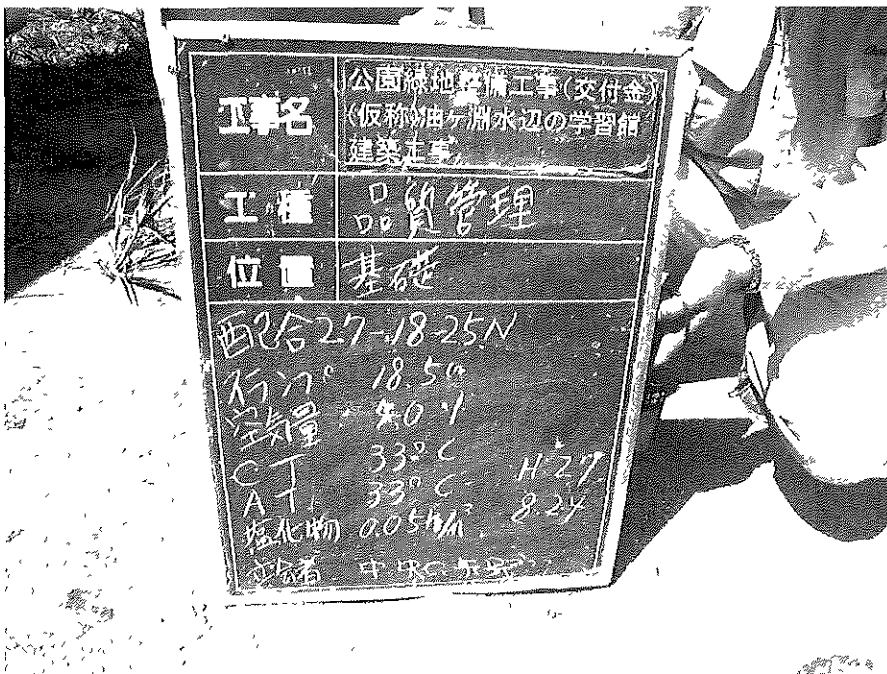 工事名
公園緑地整備工事(交付金)
(仮称)油ヶ淵水辺の学習館
建築工事
工種 品質管理
位置 基礎
配合27-18-25N
スランプ 18.5㎝
空気量 4.0%
CT 33°C
AT 33°C
H.27
8.24
塩化物 0.05㎏/㎥
立会者